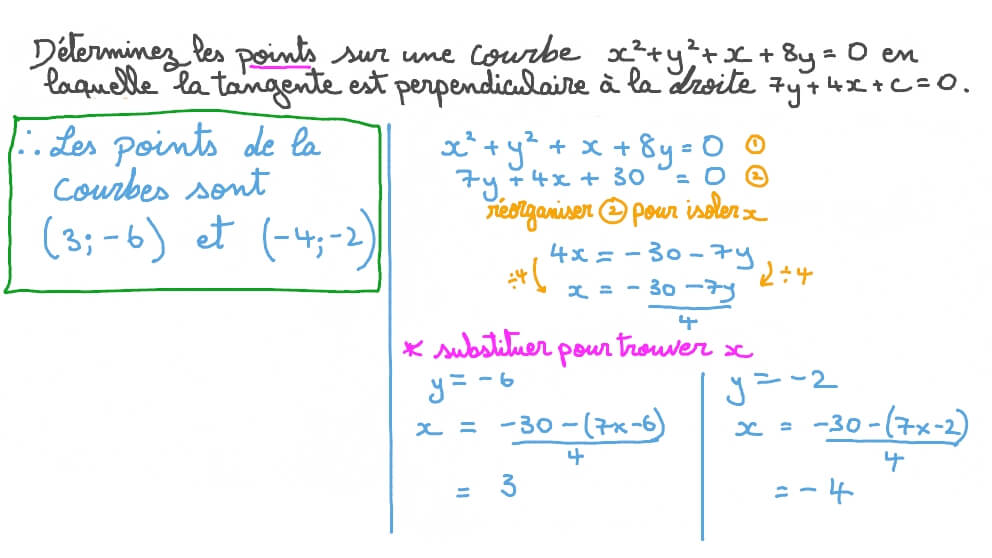 Déterminez les points sur une courbe x²+y²+x+8y=0 en
laquelle la tangente est perpendiculaire à la droite 7y+4x+c=0.
∴ Les points de la
courbes sont
(3;-6) et (-4;-2)
x²+y²+x+8y=0 ①
7y+4x+30 =0 ②
réorganiser ② pour isoler x
4x=-30-7y
÷4 x=-30-7y/4 ÷4
* substituer pour trouver x
y=-6
x = -30-(7x-6)/4
= 3
y=-2
x = -30-(7x-2)/4
=-4